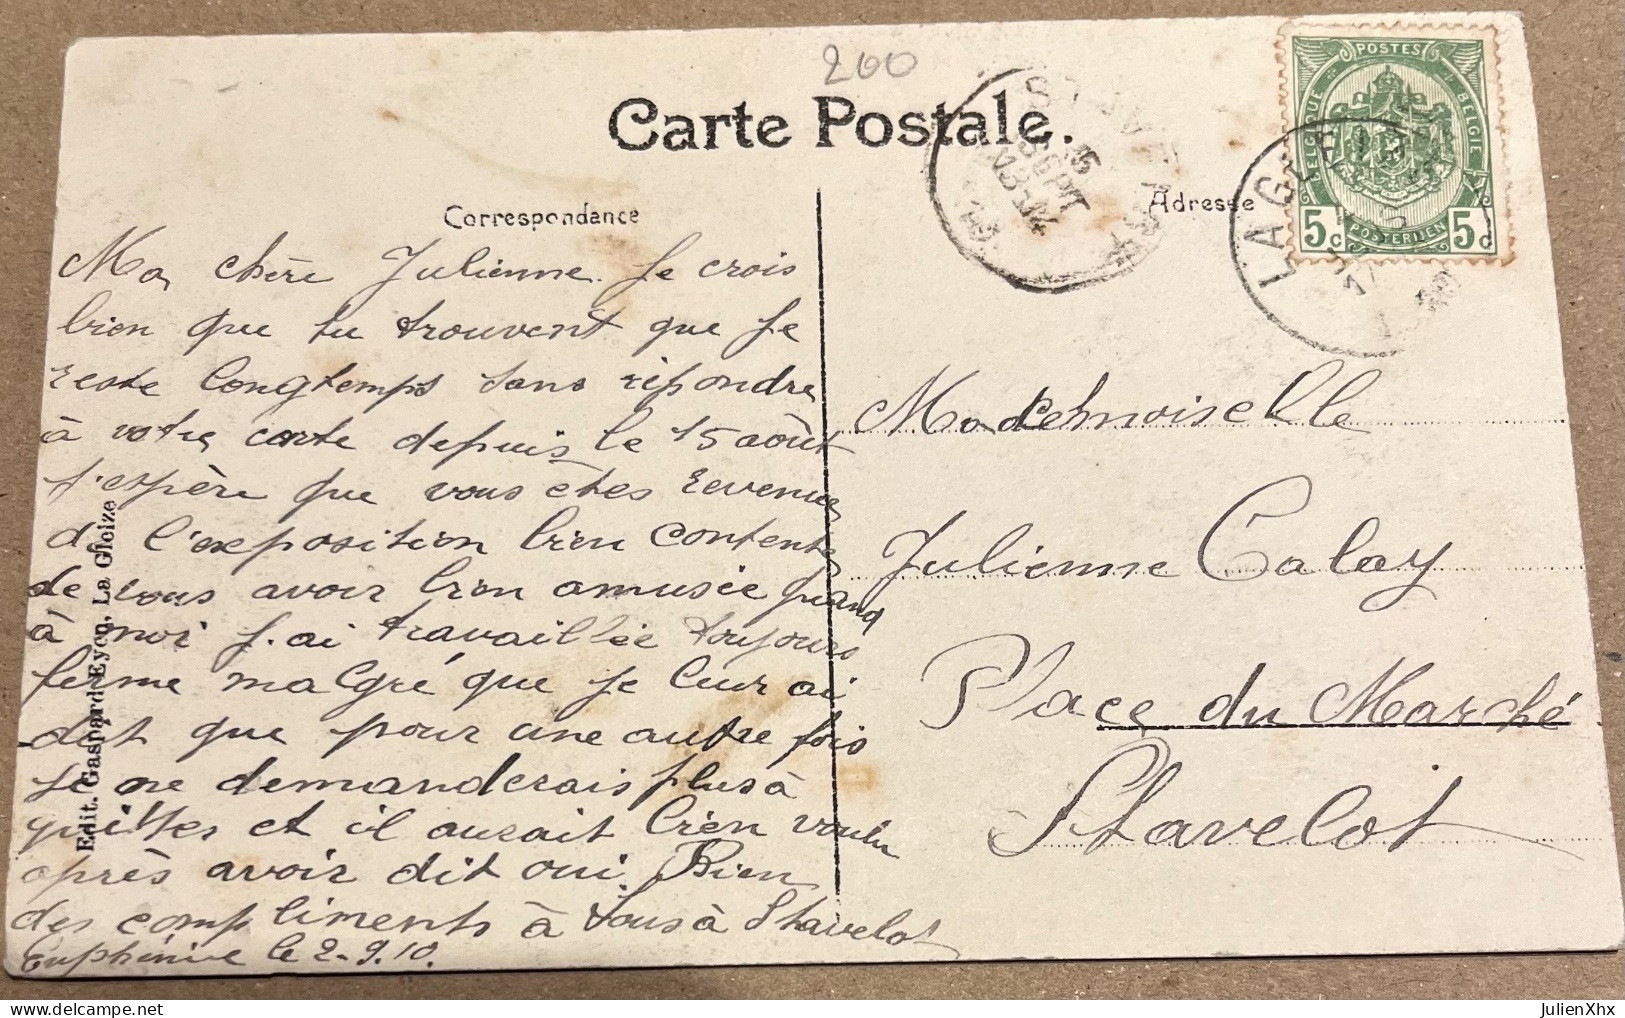 200
Carte Postale.
Correspondance
Adresse
POSTES
BELGIQUE
BELGIE
POSTERIJEN
5c 5c
STAVELOT
15
SEPT
LA GLEIZE
Ma chère Julienne. Je crois
bien que tu trouvent que je
reste longtemps sans répondre
à votre carte depuis le 15 août
J'espère que vous êtes revenues
de l'exposition bien contente
de vous avoir bien amusée quand
à moi j.ai travaillée toujours
ferme malgré que je leur ai
dit que pour une autre fois
je ne demanderais plus à
quittes et il aurait bien voulu
après avoir dit oui. Bien
des compliments à tous à Stavelot
Euphénie le 2-9.10.
Edit. Gaspard-Eyen, La Gleize
Mademoiselle
Julienne Calay
Place du Marché
Stavelot
JulienXhx